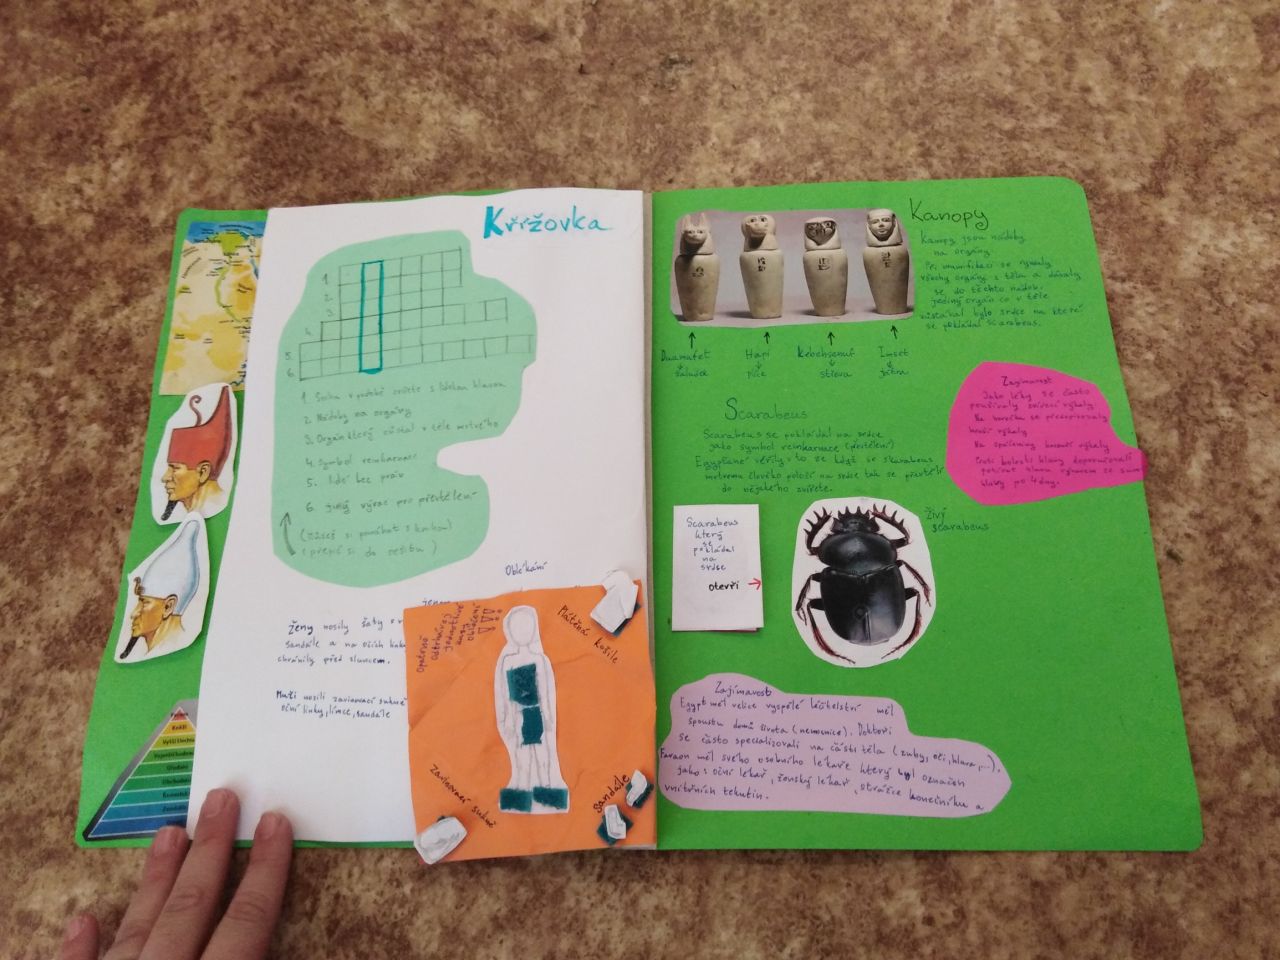 Křížovka
1.
2.
3.
4.
5.
6.
1. Socha v podobě zvířete s lidskou hlavou
2. Nádoby na orgány
3. Orgán který zůstal v těle mrtvého
4. Symbol reinkarnace
5. lidé bez práv
6. jiný výraz pro převtělení
(můžeš si pomáhat s knihou)
(přepiš si do sešitu)
Oblékání
ženy nosily šaty
sandále a na očích
chránily před sluncem.
Muži nosili zavinovací sukně
oční linky, límce, sandále
Opatrně
odtrhávej
jednotlivé
kusy
oblečení
Plátěná košile
Zavinovací sukně
Sandále
Kanopy
Kanopy jsou nádoby
na orgány
Při mumifikaci se vyndaly
všechy orgány z těla a dávaly
se do těchto nádob.
jediný orgán co v těle
zůstal bylo srdce na které
se pokládal scarabeus.
Duamutef
žaludek
Hapi
plíce
Kebehsenuf
střeva
Imset
játra
Scarabeus
Scarabeus se pokládal na srdce
jako symbol reinkarnace (převtělení)
Egypťané věřily v to že když se skarabeus
mrtvému člověku položí na srdce tak se převtělí
do nějakého zvířete.
Zajímavost
Jako léky se často
používaly zvířecí výkaly
Na horečku se předepisovaly
hroší výkaly
Na spáleniny kocouří výkaly
Proti bolesti hlavy doporučovali
potírat hlavu vývarem ze sumčí
hlavy po 4 dny.
Scarabeus
který
se
pokládal
na
srdce
otevři
Živý
scarabeus
Zajímavost
Egypt měl velice vyspělé léčitelství měl
spoustu domů života (nemocnice). Doktoři
se často specializovali na části těla (zuby, oči, hlava,...).
Faraon měl svého osobního lékaře který byl označen
jako: oční lékař, ženský lékař, strážce konečníku a
vnitřních tekutin.